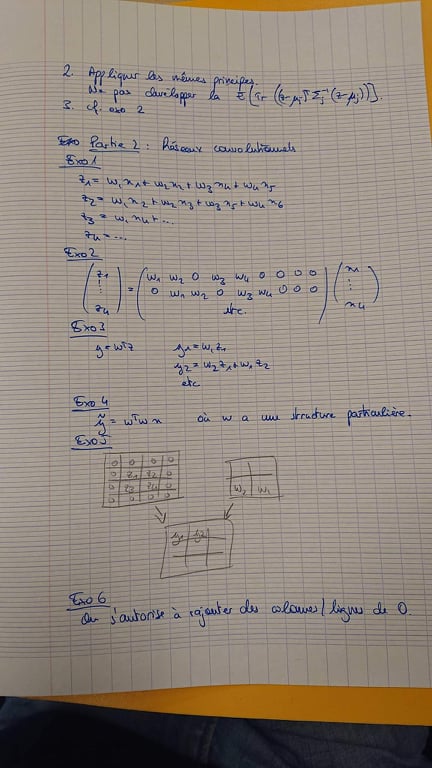 2. Appliquer les mêmes principes.
Ne pas developper la E[Tr((z-μj)ᵀ Σj⁻¹(z-μj))].
3. cf. exo 2
Partie 2 : Réseaux convolutionnels
Exo 1
z1 = w1x1 + w2x2 + w3x4 + w4x5
z2 = w1x2 + w2x3 + w3x5 + w4x6
z3 = w1x4 + ...
z4 = ...
Exo 2
(z1 ⋮ z4) = (w1 w2 0 w3 w4 0 0 0 0
0 w1 w2 0 w3 w4 0 0 0
etc.) (x1 ⋮ x4)
Exo 3
y = wᵀz y1 = w1z1
y2 = w2z1 + w1z2
etc
Exo 4
ỹ = wᵀwx où w a une structure particulière.
Exo 5
0 0 0 0
0 z1 z2 0
0 z3 z4 0
0 0 0 0
w2 w1
y1 y2
Exo 6
On s'autorise à rajouter des colonnes/lignes de 0.